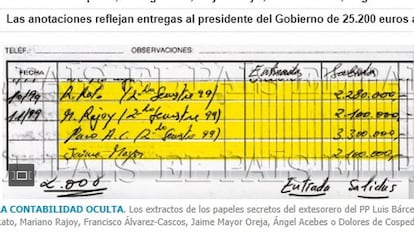 Las anotaciones reflejan entregas al presidente del Gobierno de 25.200 euros a
TELÉF.: OBSERVACIONES:
FECHA Entrada Salida
10/99 R. Rato (2º Semestre 99) 2.280.000,-
11/99 M. Rajoy (2º Semestre 99) 2.100.000,-
Paco A.C. (2º Semestre 99) 3.300.000,-
Jaime Mayor 2.100.000,-
EL PAÍS EL PAÍS
2.000 Entrada Salidas
LA CONTABILIDAD OCULTA. Los extractos de los papeles secretos del extesorero del PP Luis Bárce
ato, Mariano Rajoy, Francisco Álvarez-Cascos, Jaime Mayor Oreja, Ángel Acebes o Dolores de Cosped